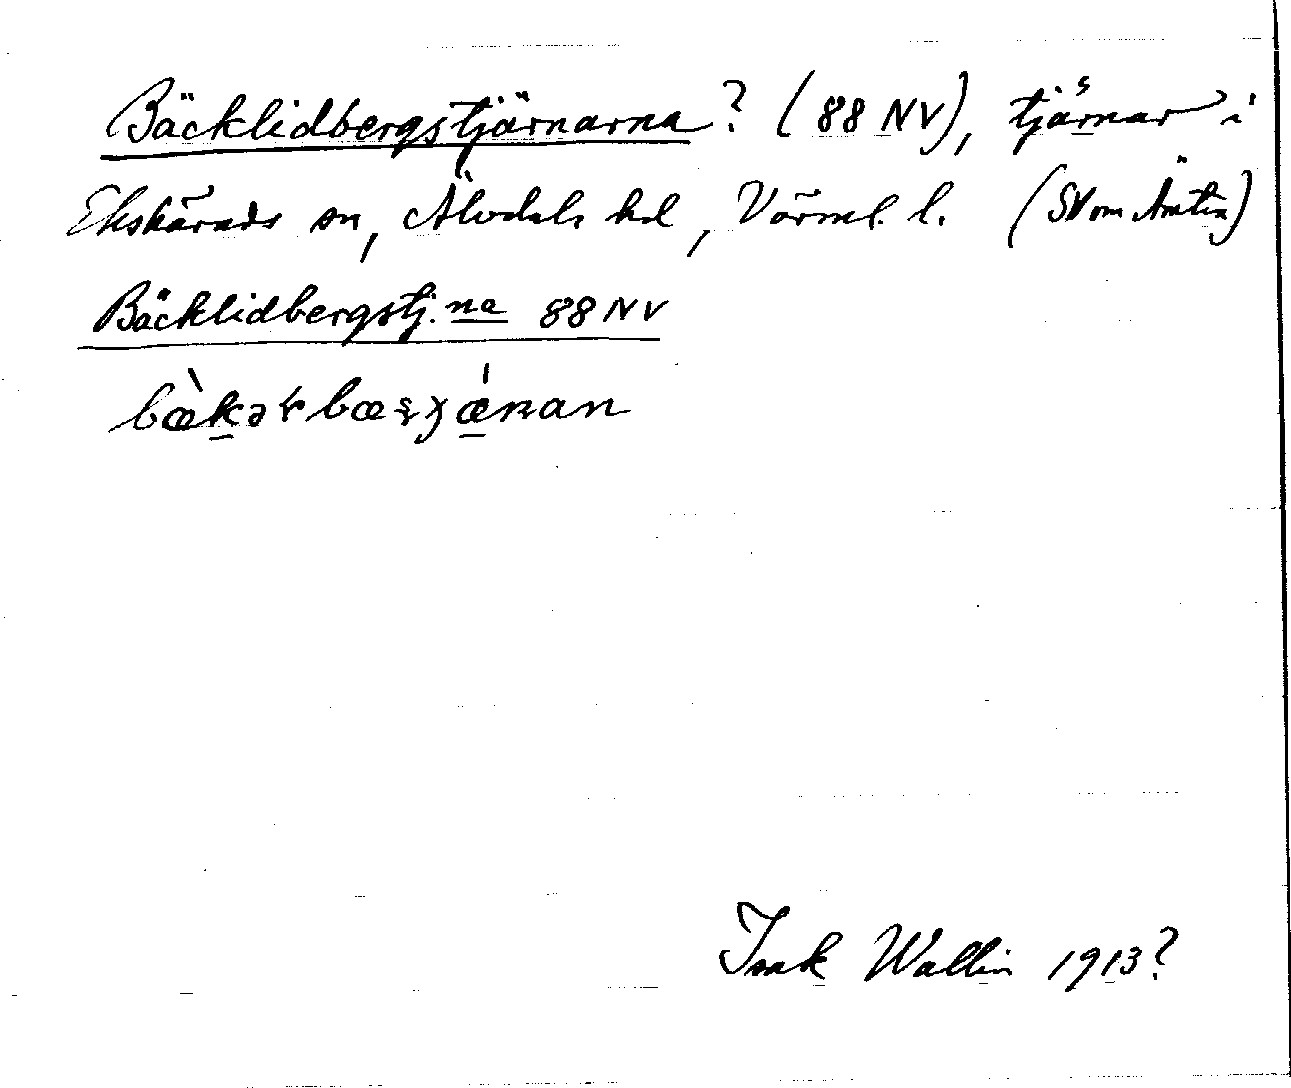 Bäcklidbergstjärnarna? (88 NV), tjärnar i
Ekshärads sn, Älvdals hd, Värml. l. (SV om Ämten)
Bäcklidbergstj.na 88 NV
Isak Wallin 1913?